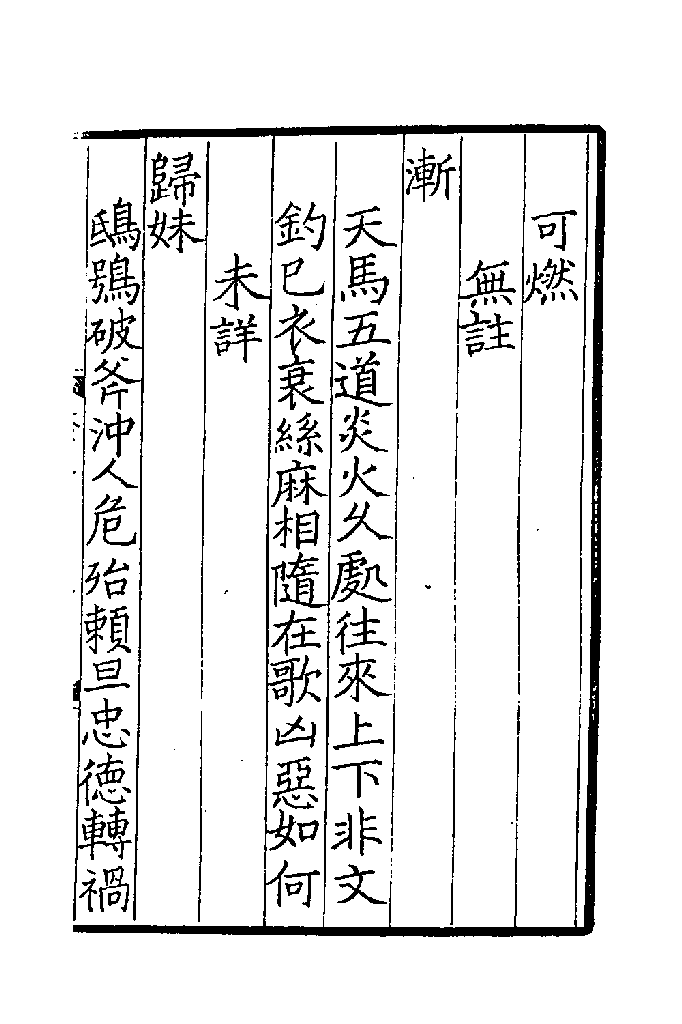 可燃
無註
漸
天馬五道炎火久處往來上下非文
釣巳衣衰絲麻相隨在歌凶惡如何
未詳
歸妹
鴟鴞破斧沖人危殆賴旦忠德轉禍